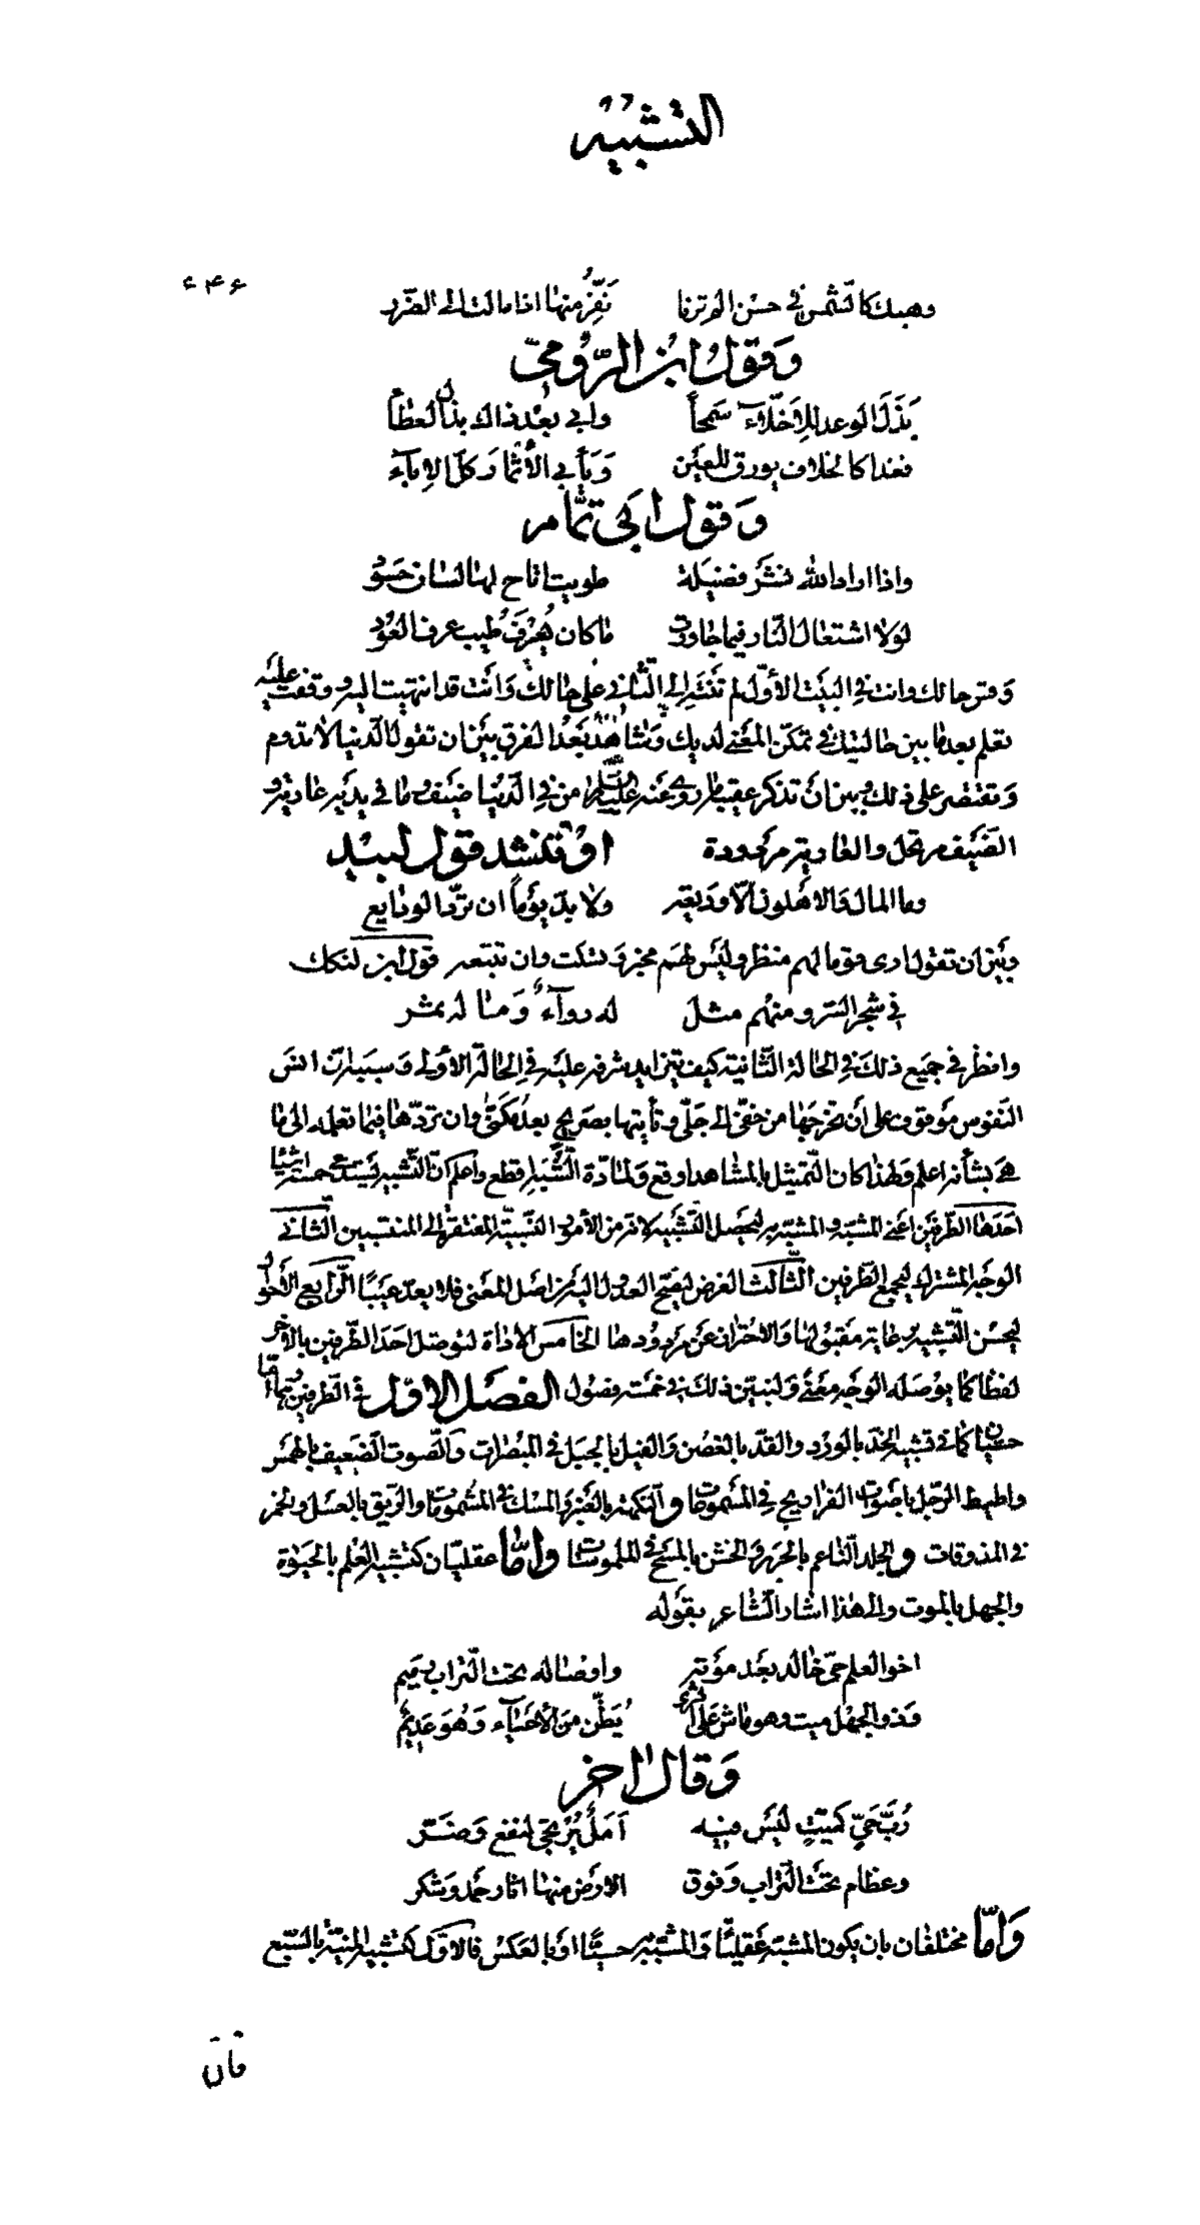 التشبيه
۶۴۶
وهبك كالشمس في حسن الم ترنا نَفِرُّ منها اذا مالت الى الضرر
وَقول ابن الرّومي
بَذَلَ الوعد لِلاَخلّآء سَمحاً وابى بعْد ذاك بذل العطآ
فغدا كالخلاف يورق للعَين وَيَأبى الأثمارَ كل الإبآء
وَقول ابى تمّام
واذا اراد الله نشرَ فضيلة طويت اتاح لها لسان حسَود
لولا اشتعال النّار فيما جاورت ما كان يُعرَفُ طيب عرف العُود
وَقس حالك وانت في البيَت الأوّل لم تَنتَه الى الثّاني على حالك وَانت قد انتهيت اليه ووقفت عليَه
تعلم بعد ما بين حالتيك في تمكّن المعَنى لديك وَتشاهد بَعْد الفرق بيَن ان تقول الدّنيا لا تدوم
وَتقتصر على ذلك وبين انَ تذكر عقيبه ما روى عنه عليه السلام من في الدّنيا ضيَف وما في يديَه عارية و
الضَيف مرتحل والعارية مردودة اوْ تنشد قول لبيد
وما المال وَالاهَلون الّا وديَعة ولا بدّ يوَماً ان تردّ الودايع
وبيَن ان تقول ارى قوما لهم منظر وليَس لهَم مخبر وَتسكت وان تتبعه قول ابن لنكك
في شجر السّرو منهُم مثل له روآءٌ وَما له ثمر
وانظر في جميَع ذلك في الحالة الثّانية كيف تيزايد شرفه عليَه في الحالَة الأولى وَسببه ان انسَ
النّفوس موَقوف على أن تخرجَها من خفىّ الى جلىّ وتأتيها بصَريح بعد مكنىّ وان تردّها فيما تعلمه الى ما
هىَ بشأنه اعلم وَلهذا كان التّمثيل بالمشاهد اوقع ولمادّة الشبَهة قطع واعلم انّ التّشبيه يسَتدعى خمسَة اشَيا
احَدها الطّرفيَن اعَنى المشبّه والمشبّه به ليَحصل التشبَيه لانّه من الأموَر النّسبيّة المفتقرة الى المنتسبين الثّانى
الوجَه المشترك ليَجمع الطّرفين الثّالث الغرض ليَصّح العدول اليَه من اصَل المعَنى فلا يعدّ عيَبًا الرّابع الأحوال
ليحسُن التّشبيه برعاية مقبوَلها وَالاحتراز عن مردُودها الخامس الأداة لتوصل احَد الطّرفين بالآخر
لفظا كما يوصَله الوجَه معنىً وَلنبيّن ذلك في خمسَة فصُول الفصَل الاوّل في الطّرفيَن وهما امّا
حسيّان كما في تشبيه الخدّ بالورْد والقدّ بالغصُن وَالفيل بالجبَل في المبُصَرات وَالصّوت الضَعيف بالهمَس
واطيط الرّحل باصَوات الفراريج في المسَموعات والنّكهة بالعنَبر وَالمسك في المشُمومات والرّيق بالعسَل والخمَر
في المذوقات والجلد النّاعم بالحرير وَالخشن بالمسَح في الملموسات وامّا عقليّان كتشبيه العِلم بالحيَوة
والجهل بالموت والى هذا اشار الشّاعر بقوَله
اخو العلم حىّ خالد بعَد موَته واوصاله تحت التّراب رميَم
وَذو الجهْل ميت وهو ماش عَلى الثرى يُظَنّ منَ الأحَيآء وَهُوَ عَديِمُ
وَقال اخر
رُبّ حَيٍّ كميّتٍ ليَس فيه اَمَلٌ يُرتجى لنفع وَضَرّ
وعظام تحَت التّراب وَفوق الارَض منها اثار حمَد وَشكر
وَامّا مختلفان بان يكون المشبّه عَقليّا وَالمشبّه به حسيًّا اوَ بالعَكسْ فالاوّل كتشبيه المنيّة بالسّبع
فان